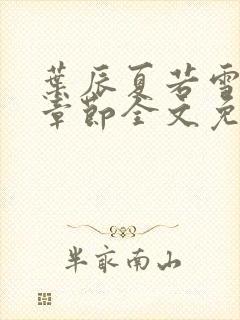 葉辰夏若雪
章節全文免
半哀南山